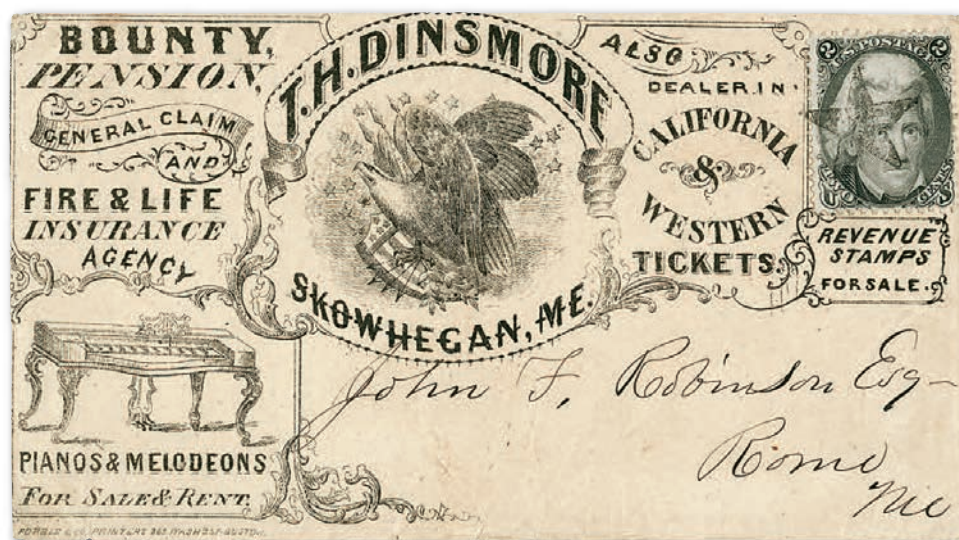 BOUNTY,
PENSION,
GENERAL CLAIM
AND
FIRE & LIFE
INSURANCE
AGENCY
PIANOS & MELODEONS
FOR SALE & RENT.
T.H. DINSMORE
SKOWHEGAN, ME.
ALSO
DEALER IN
CALIFORNIA
&
WESTERN
TICKETS.
2 POSTAGE 2
CENTS
REVENUE
STAMPS
FOR SALE.
John F. Robinson Esq—
Rome
Me